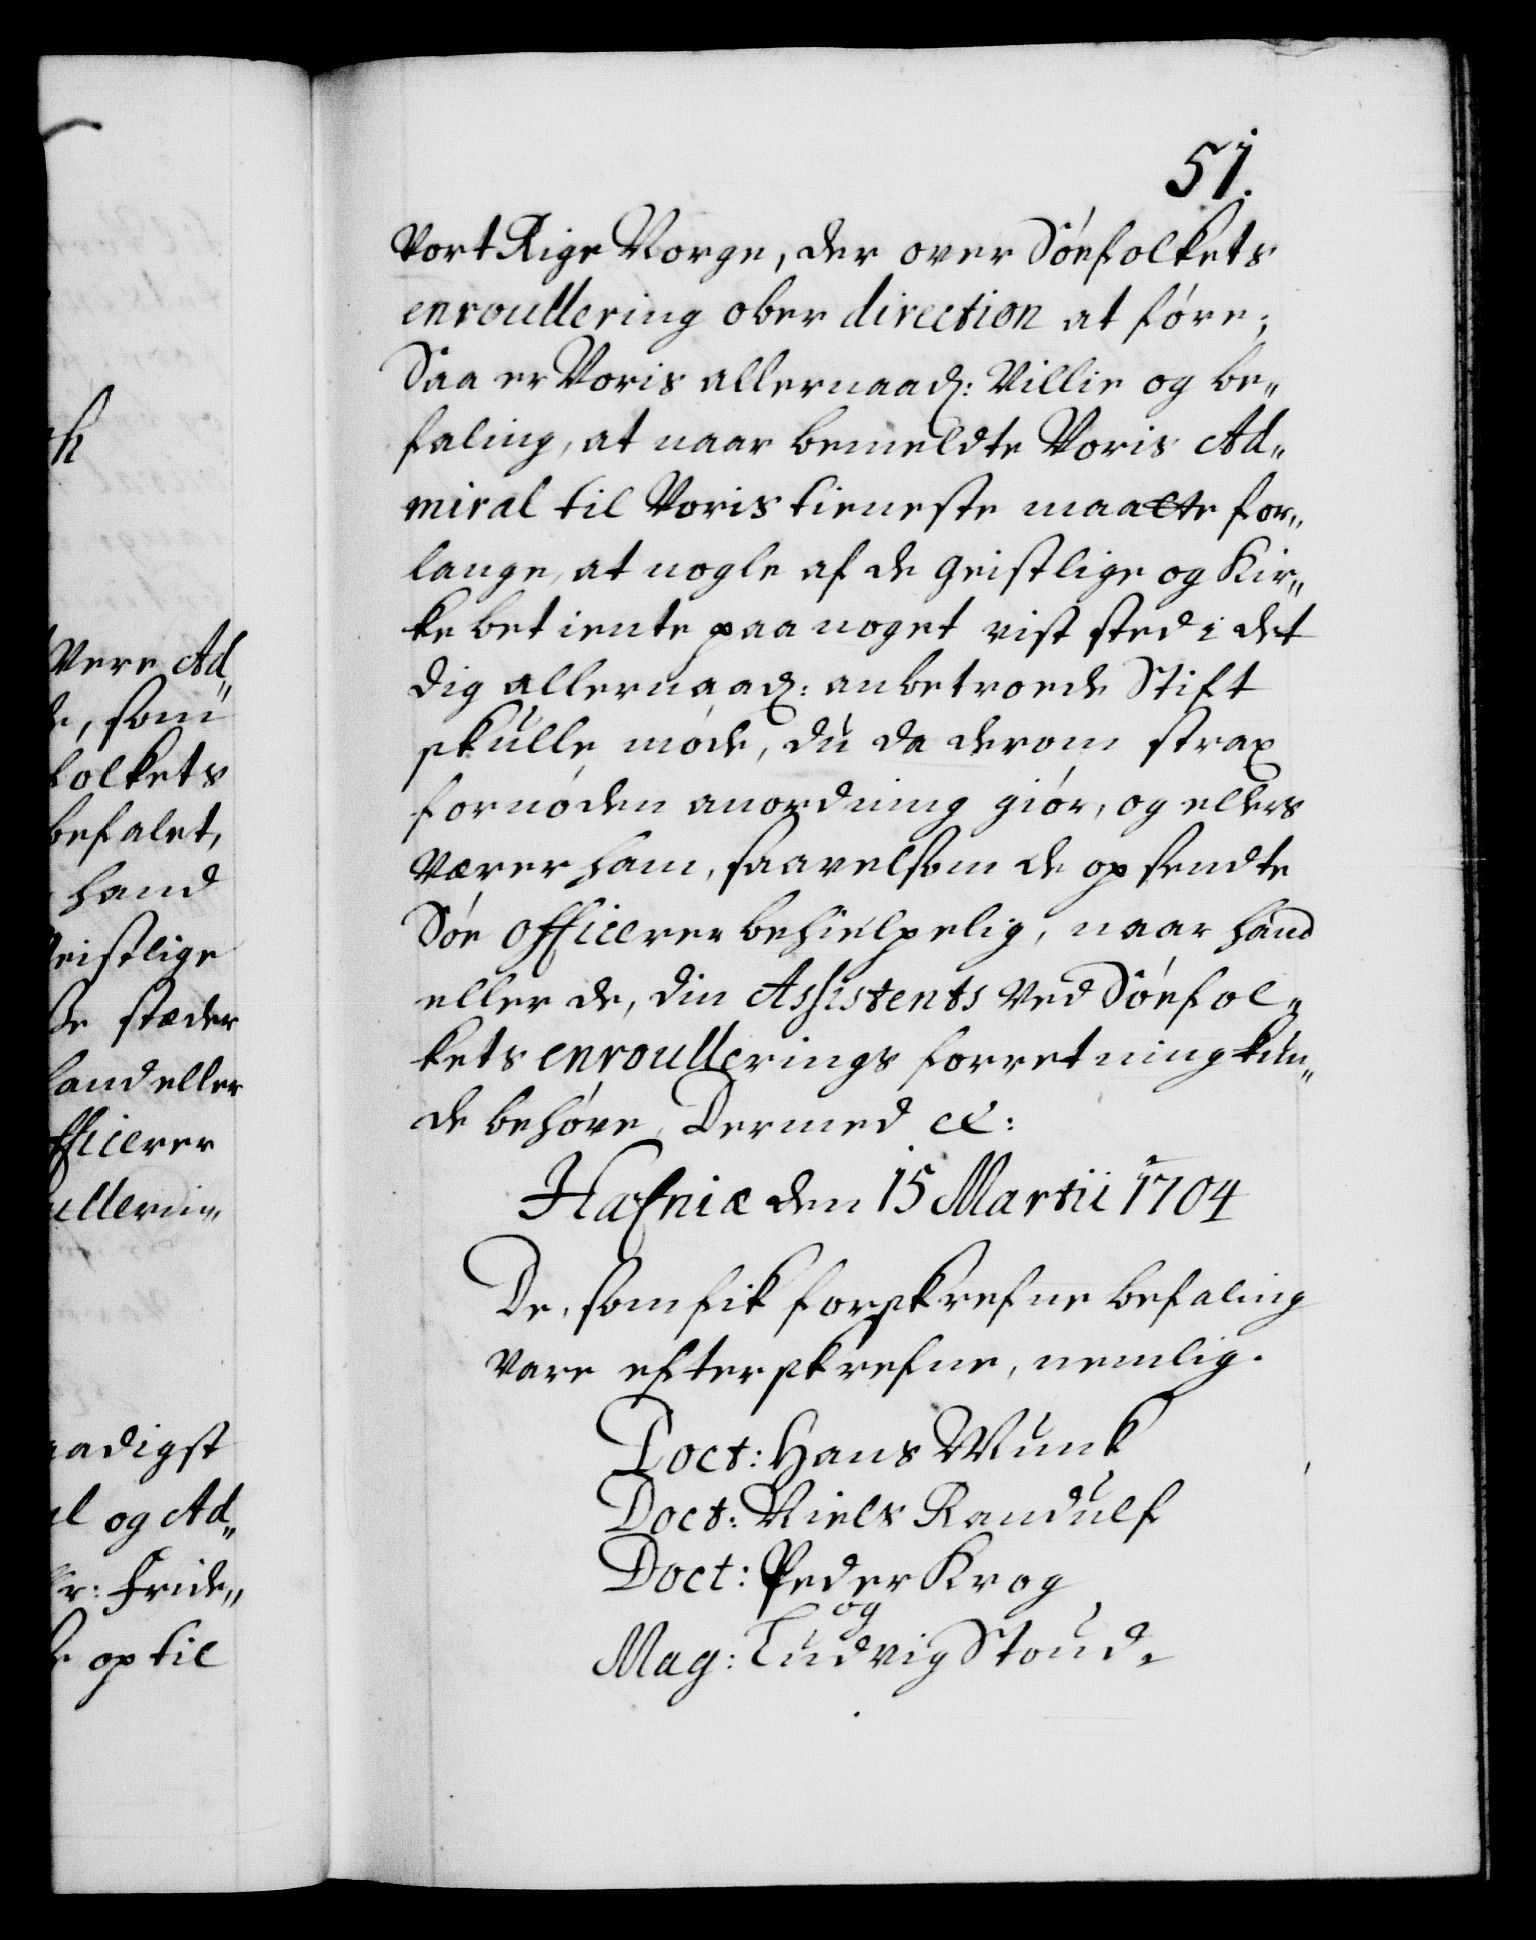 51.
Vort Rige Norge, der over Söefolkets
enroullering ober direction at före;
Saa er Voris allernaad: Villie og be„
faling, at naar bemeldte Voris Ad„
miral til Voris tieneste maatte for„
lange, at nogle af de geistlige og Kir„
ke betiente paa noget vist sted i det
dig allernaad: anbetroede Stift
skulle möde, du da derom strax
fornöden anordning giör, og ellers
værer ham, saavelsom de op sendte
Söe officerer behielpelig, naar hand
eller de, din Assistents ved Söefol„
kets enroullerings forretning kun„
de behöve, Dermed etc:
Hafniæ den 15 Martii 1704
De, som fik forskrefne befaling
vare efterskrefne, nemlig.
Doct: Hans Munk
Doct: Niels Randulf
Doct: Peder Krog
og
Mag: Ludvig Stoud.
Vere Ad„
som
folkets
befalet,
hand
eistlige
stæder
hand eller
fficerer
ullerin„
aadigst
og Ad„
Fride„
op til